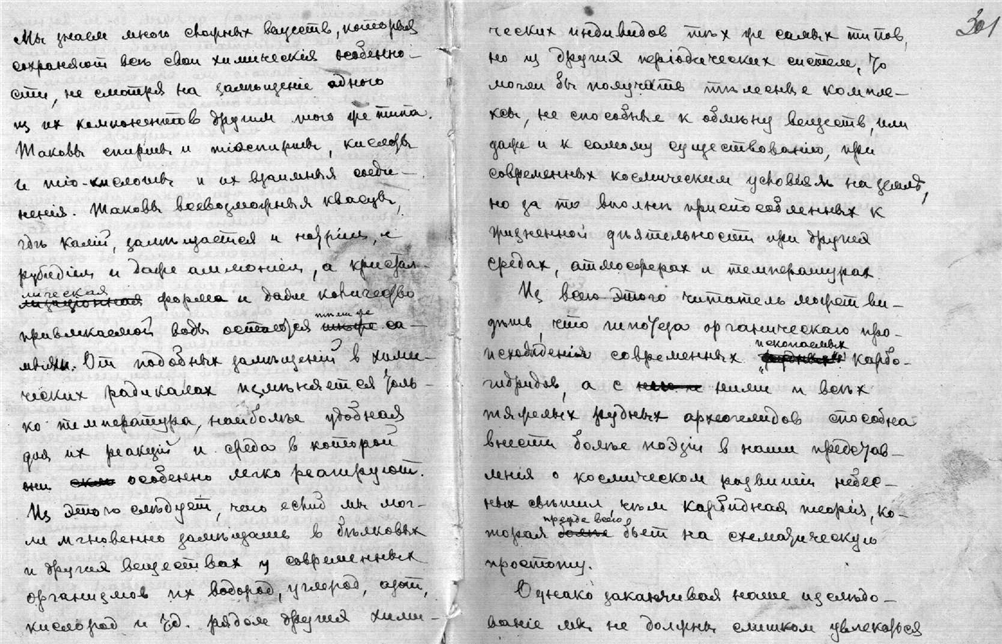 Мы знаем много сложных веществ, которыя
сохраняют всѣ свои химическія особенно-
сти, не смотря на замѣщеніе одного
из их компонентов другим того же типа.
Таковы спирты и тіоспирты, кислоты
и тіо-кислоты и их взаимныя соеди-
ненія. Таковы всевозможныя квасцы,
гдѣ калій, замѣщается и натріем, и
рубидіем и даже аммоніем, а кристал-
лическая
форма и даже количество
привлекаемой воды остаются тѣми же са-
мыми. От подобных замѣщеній в хими-
ческих радикалах измѣняется толь-
ко температура, наиболѣе удобная
для их реакцій и среда в которой
они особенно легко реагируют.
Из этого слѣдует, что если мы мог-
ли мгновенно замѣщать в бѣлковых
и других веществах у современных
организмов их водород, углерод, азот,
кислород и т.д. рядом других хими-
301
ческих индивидов тѣх же самых типов,
но из других періодических систем, то
могли бы получить тѣлесные компле-
ксы, не способные к обмѣну веществ, или
даже и к самому существованію, при
современных космическим условіям на землѣ,
но за то вполнѣ приспособленных к
жизненной дѣятельности при других
средах, атмосферах и температурах.
Из всего этого читатель может ви-
дѣть, что гипотеза органическаго про-
ископаемых
исхожденія современных карбо-
гидридов, а с ними и всѣх
тяжелых рудных археогелидов способна
внести болѣе поэзіи в наши представ-
ленія о космическом развитіи небес-
ных свѣтил, чѣм карбидная теорія, ко-
прежде всего
торая бьет на схематическую
простоту.
Однако заканчивая наше изслѣдо-
ваніе мы не должны слишком увлекаться